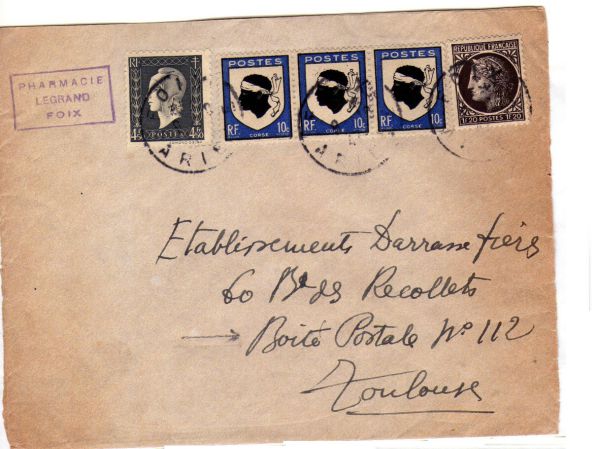 PHARMACIE
LEGRAND
FOIX
RF
4F
POSTES
4F
POSTES
RF. 10c
CORSE
POSTES
RF. 10c
CORSE
POSTES
RF. 10c
CORSE
REPUBLIQUE FRANÇAISE
1F20 POSTES 1F20
FOIX
ARIEGE
Etablissements Darrasse frères
60 Bd des Recollets
Boîte Postale N° 112
Toulouse